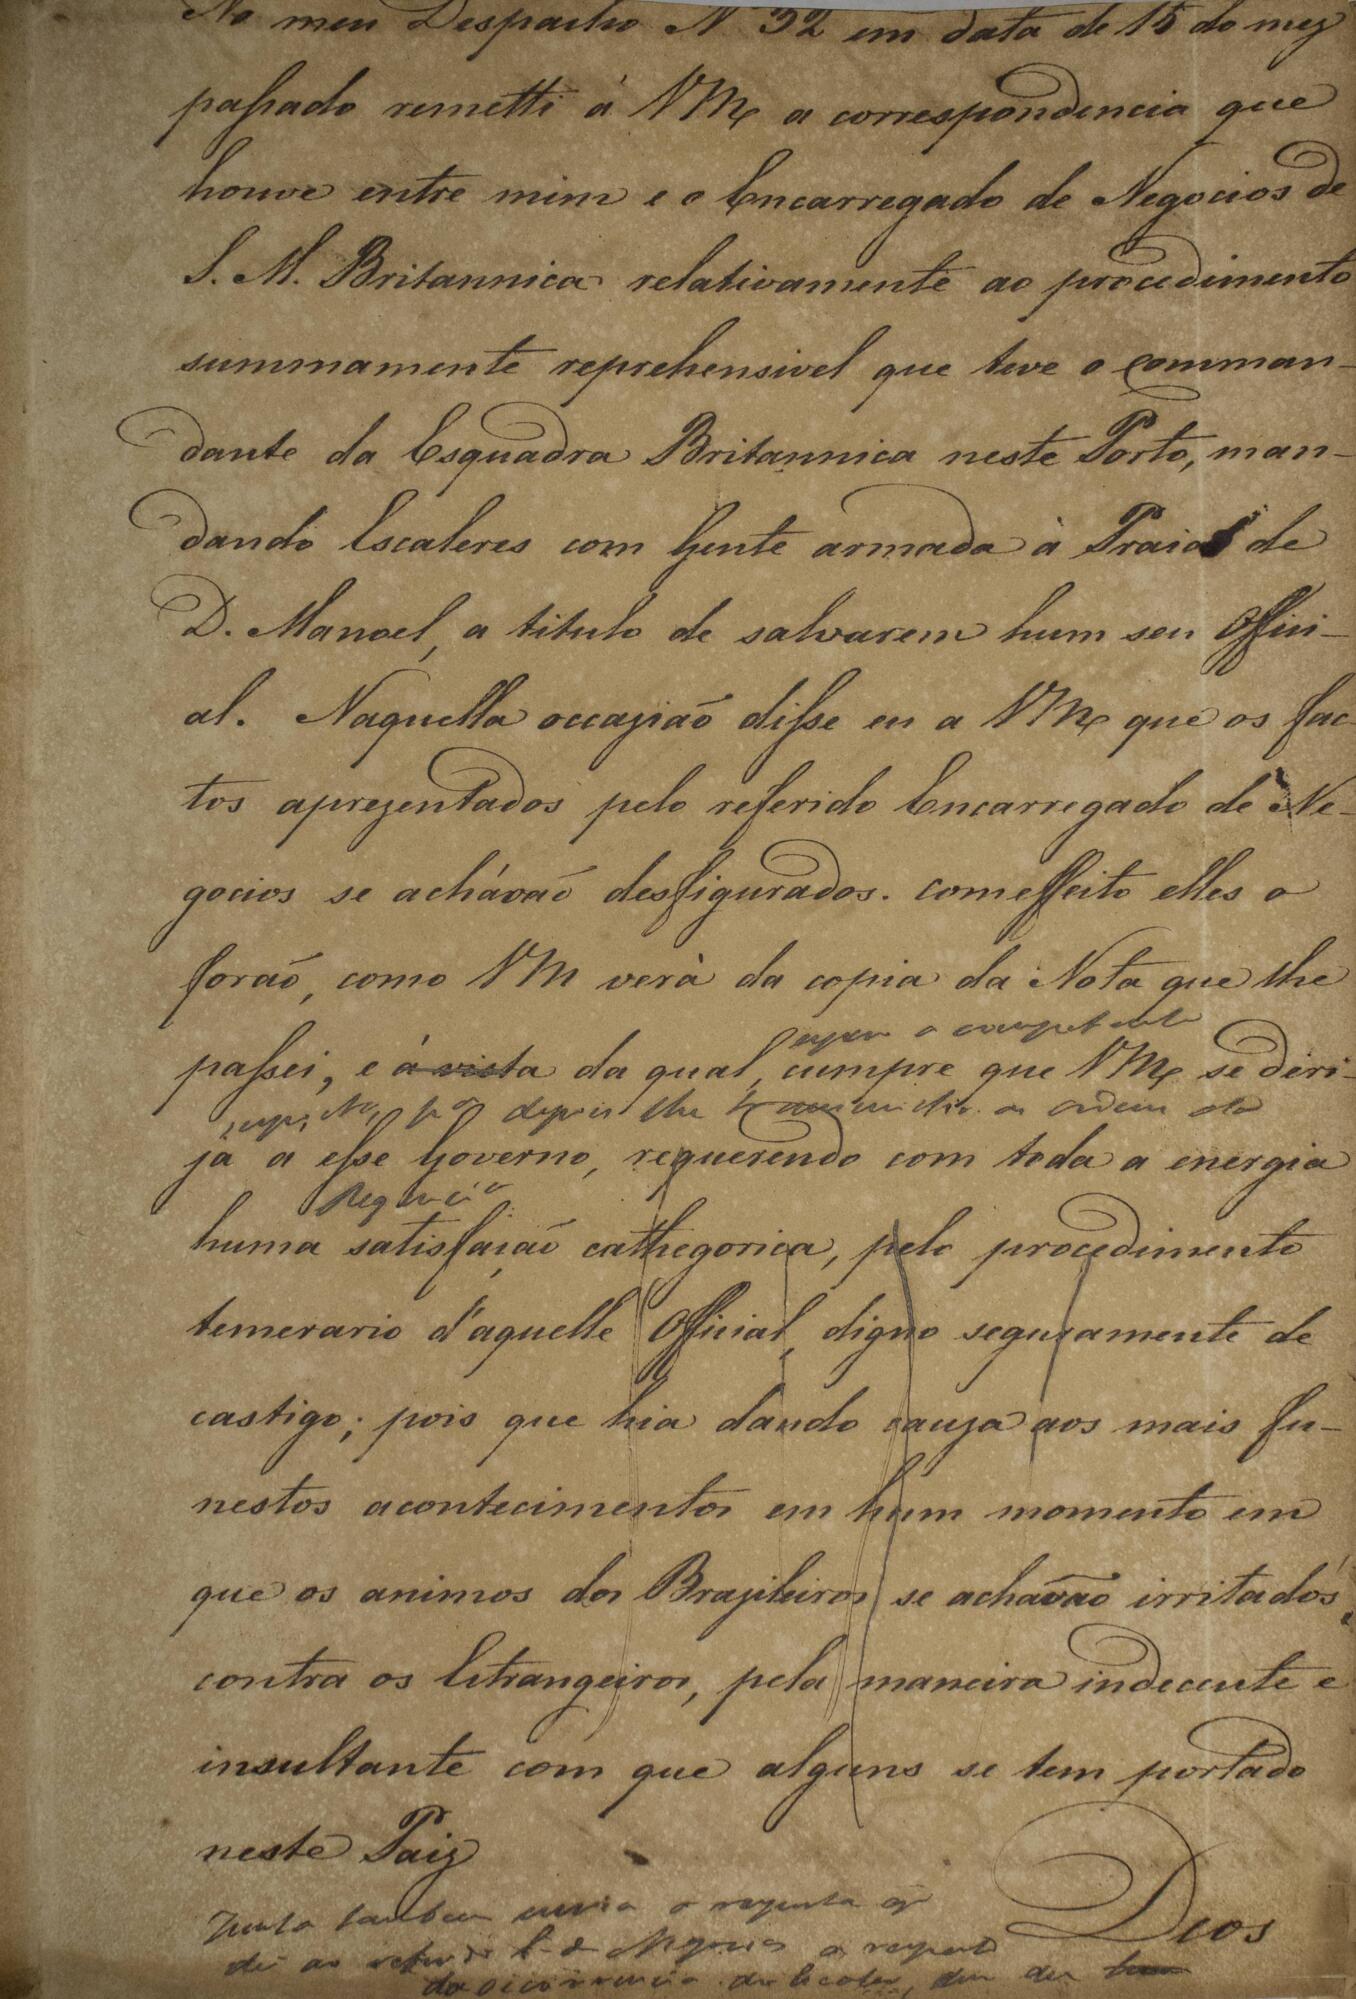 No meu Despacho N 32 em data de 15 do mez
passado remetti á VM.ce a correspondencia que
houve entre mim e o Encarregado de Negocios de
S. M. Britannica relativamente ao procedimento
summamente reprehensivel que teve o comman-
dante da Esquadra Britannica neste Porto, man-
dando Escaleres com Gente armada à Praia de
D. Manoel, a titulo de salvarem hum seu Offici-
al. Naquella occazião disse eu a VM.ce que os fac
tos aprezentados pelo referido Encarregado de Ne-
gocios se achávão desfigurados. com effeito elles o
forão, como VM verà da copia da Nota que lhe
passei, e á vista da qual, cumpre que VM.ce se diri-
ja a esse Governo, requerendo com toda a energia
Regencia
huma satisfaição cathegorica, pelo procedimento
temerario d'aquelle Official, digno seguramente de
castigo; pois que hia dando cauza aos mais fu-
nestos acontecimentos em hum momento em
que os animos dos Brazileiros se achavão irritados
contra os Estrangeiros, pela maneira indecente e
insultante com que alguns se tem portado
neste Paiz
Deos
Junto tambem envio a resposta q
dei ao referido E. de Negocios a respeito